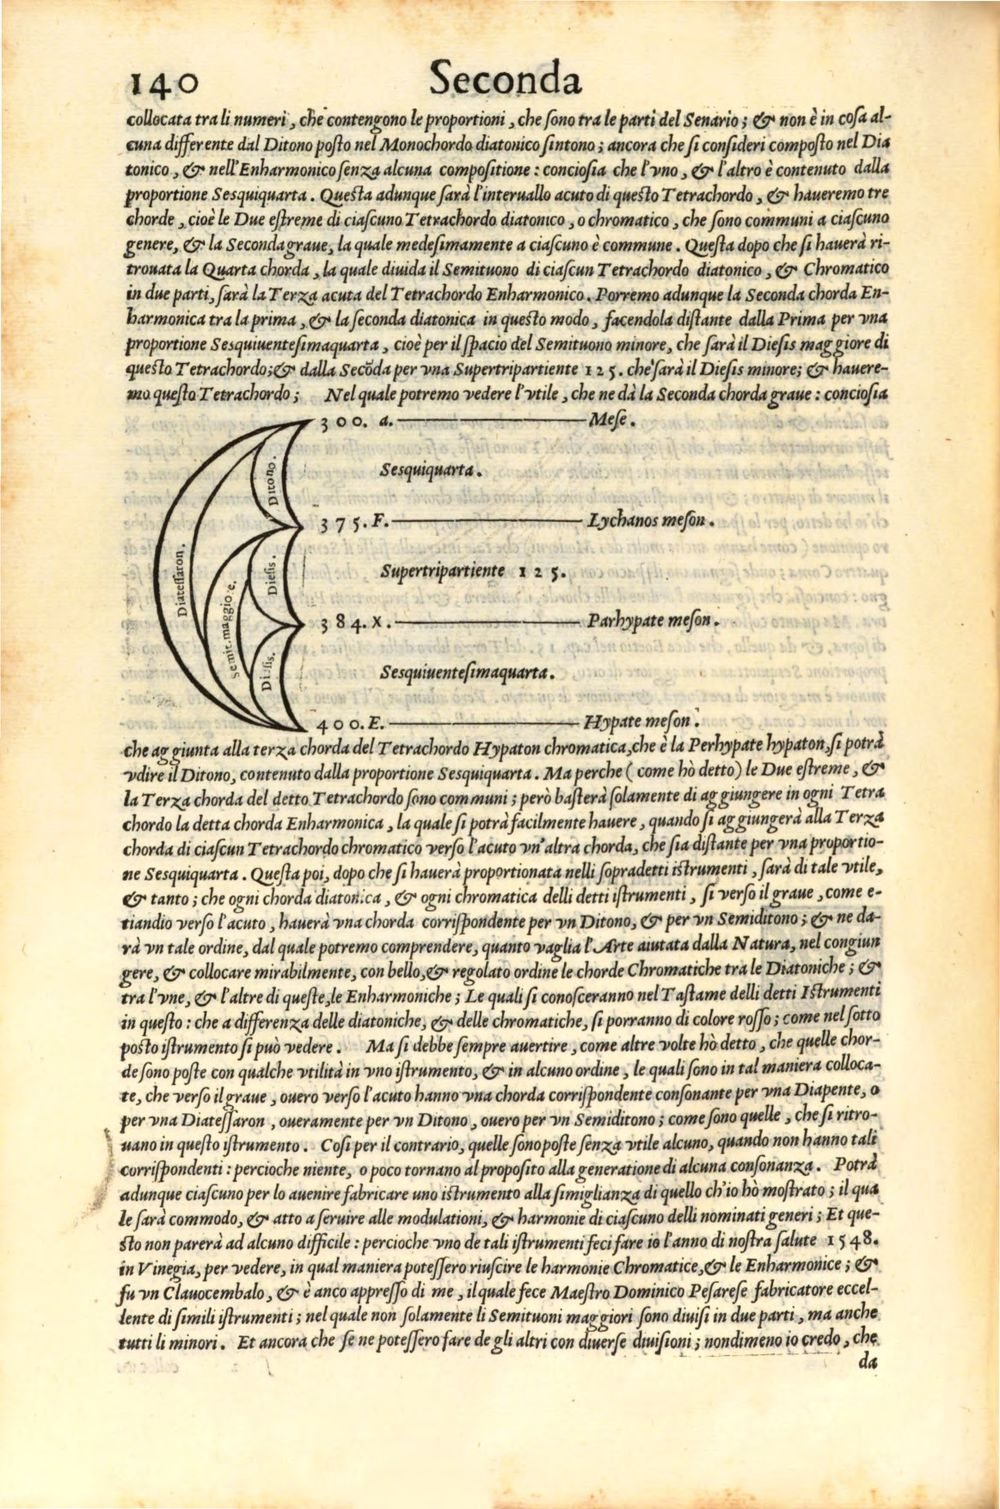 140 Seconda
collocata tra li numeri, che contengono le proportioni, che sono tra le parti del Senario; & non è in cosa al-
cuna differente dal Ditono posto nel Monochordo diatonico sintono; ancora che si consideri composto nel Dia
tonico, & nell'Enharmonico senza alcuna compositione: conciosia che l'vno, & l'altro è contenuto dalla
proportione Sesquiquarta. Questa adunque sarà l'interuallo acuto di questo Tetrachordo, & haueremo tre
chorde, cioè le Due estreme di ciascuno Tetrachordo diatonico, o chromatico, che sono communi a ciascuno
genere, & la Seconda graue, la quale medesimamente a ciascuno è commune. Questa dopo che si hauerà ri-
trouata la Quarta chorda, la quale diuida il Semituono di ciascun Tetrachordo diatonico, & Chromatico
in due parti, sarà la Terza acuta del Tetrachordo Enharmonico. Porremo adunque la Seconda chorda En-
harmonica tra la prima, & la seconda diatonica in questo modo, facendola distante dalla Prima per vna
proportione Sesquiuentesimaquarta, cioè per il spacio del Semituono minore, che sarà il Diesis maggiore di
questo Tetrachordo; & dalla Secōda per vna Supertripartiente 125. che sarà il Diesis minore; & hauere-
mo questo Tetrachordo; Nel quale potremo vedere l'vtile, che ne dà la Seconda chorda graue: conciosia
300. a. Mese.
Ditono. Sesquiquarta.
375. F. Lychanos meson.
Diatessaron. semit. maggiore. Diesis. Supertripartiente 125.
384. X. Parhypate meson.
Diesis. Sesquiuentesimaquarta.
400. E. Hypate meson.
che aggiunta alla terza chorda del Tetrachordo Hypaton chromatica, che è la Perhypate hypaton, si potrà
vdire il Ditono, contenuto dalla proportione Sesquiquarta. Ma perche (come hò detto) le Due estreme, &
la Terza chorda del detto Tetrachordo sono communi; però basterà solamente di aggiungere in ogni Tetra
chordo la detta chorda Enharmonica, la quale si potrà facilmente hauere, quando si aggiungerà alla Terza
chorda di ciascun Tetrachordo chromatico verso l'acuto vn'altra chorda, che sia distante per vna proportio-
ne Sesquiquarta. Questa poi, dopo che si hauerà proportionata nelli sopradetti istrumenti, sarà di tale vtile,
& tanto; che ogni chorda diatonica, & ogni chromatica delli detti istrumenti, si verso il graue, come e-
tiandio verso l'acuto, hauerà vna chorda corrispondente per vn Ditono, & per vn Semiditono; & ne da-
rà vn tale ordine, dal quale potremo comprendere, quanto vaglia l'Arte aiutata dalla Natura, nel congiun
gere, & collocare mirabilmente, con bello, & regolato ordine le chorde Chromatiche tra le Diatoniche; &
tra l'vne, & l'altre di queste, le Enharmoniche; Le quali si conosceranno nel Tastame delli detti Istrumenti
in questo: che a differenza delle diatoniche, & delle chromatiche, si porranno di colore rosso; come nel sotto
posto istrumento si può vedere. Ma si debbe sempre auertire, come altre volte hò detto, che quelle chor-
de sono poste con qualche vtilità in vno istrumento, & in alcuno ordine, le quali sono in tal maniera colloca-
te, che verso il graue, ouero verso l'acuto hanno vna chorda corrispondente consonante per vna Diapente, o
per vna Diatessaron, oueramente per vn Ditono, ouero per vn Semiditono; come sono quelle, che si ritro-
uano in questo istrumento. Cosi per il contrario, quelle sono poste senza vtile alcuno, quando non hanno tali
corrispondenti: percioche niente, o poco tornano al proposito alla generatione di alcuna consonanza. Potrà
adunque ciascuno per lo auenire fabricare uno istrumento alla simiglianza di quello ch'io hò mostrato; il qua
le sarà commodo, & atto a seruire alle modulationi, & harmonie di ciascuno delli nominati generi; Et que-
sto non parerà ad alcuno difficile: percioche vno de tali istrumenti feci fare io l'anno di nostra salute 1548.
in Vinegia, per vedere, in qual maniera potessero riuscire le harmonie Chromatice, & le Enharmonice; &
fu vn Clauocembalo, & è anco appresso di me, il quale fece Maestro Dominico Pesarese fabricatore eccel-
lente di simili istrumenti; nel quale non solamente li Semituoni maggiori sono diuisi in due parti, ma anche
tutti li minori. Et ancora che se ne potessero fare de gli altri con diuerse diuisioni; nondimeno io credo, che
da